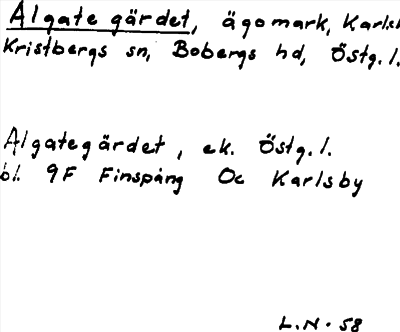 Algate gärdet, ägomark, Karlsb
Kristbergs sn, Bobergs hd, Östg.l.
Algategärdet, ek. Östg.l.
bl. 9F Finspång Oc Karlsby
L.N. 58